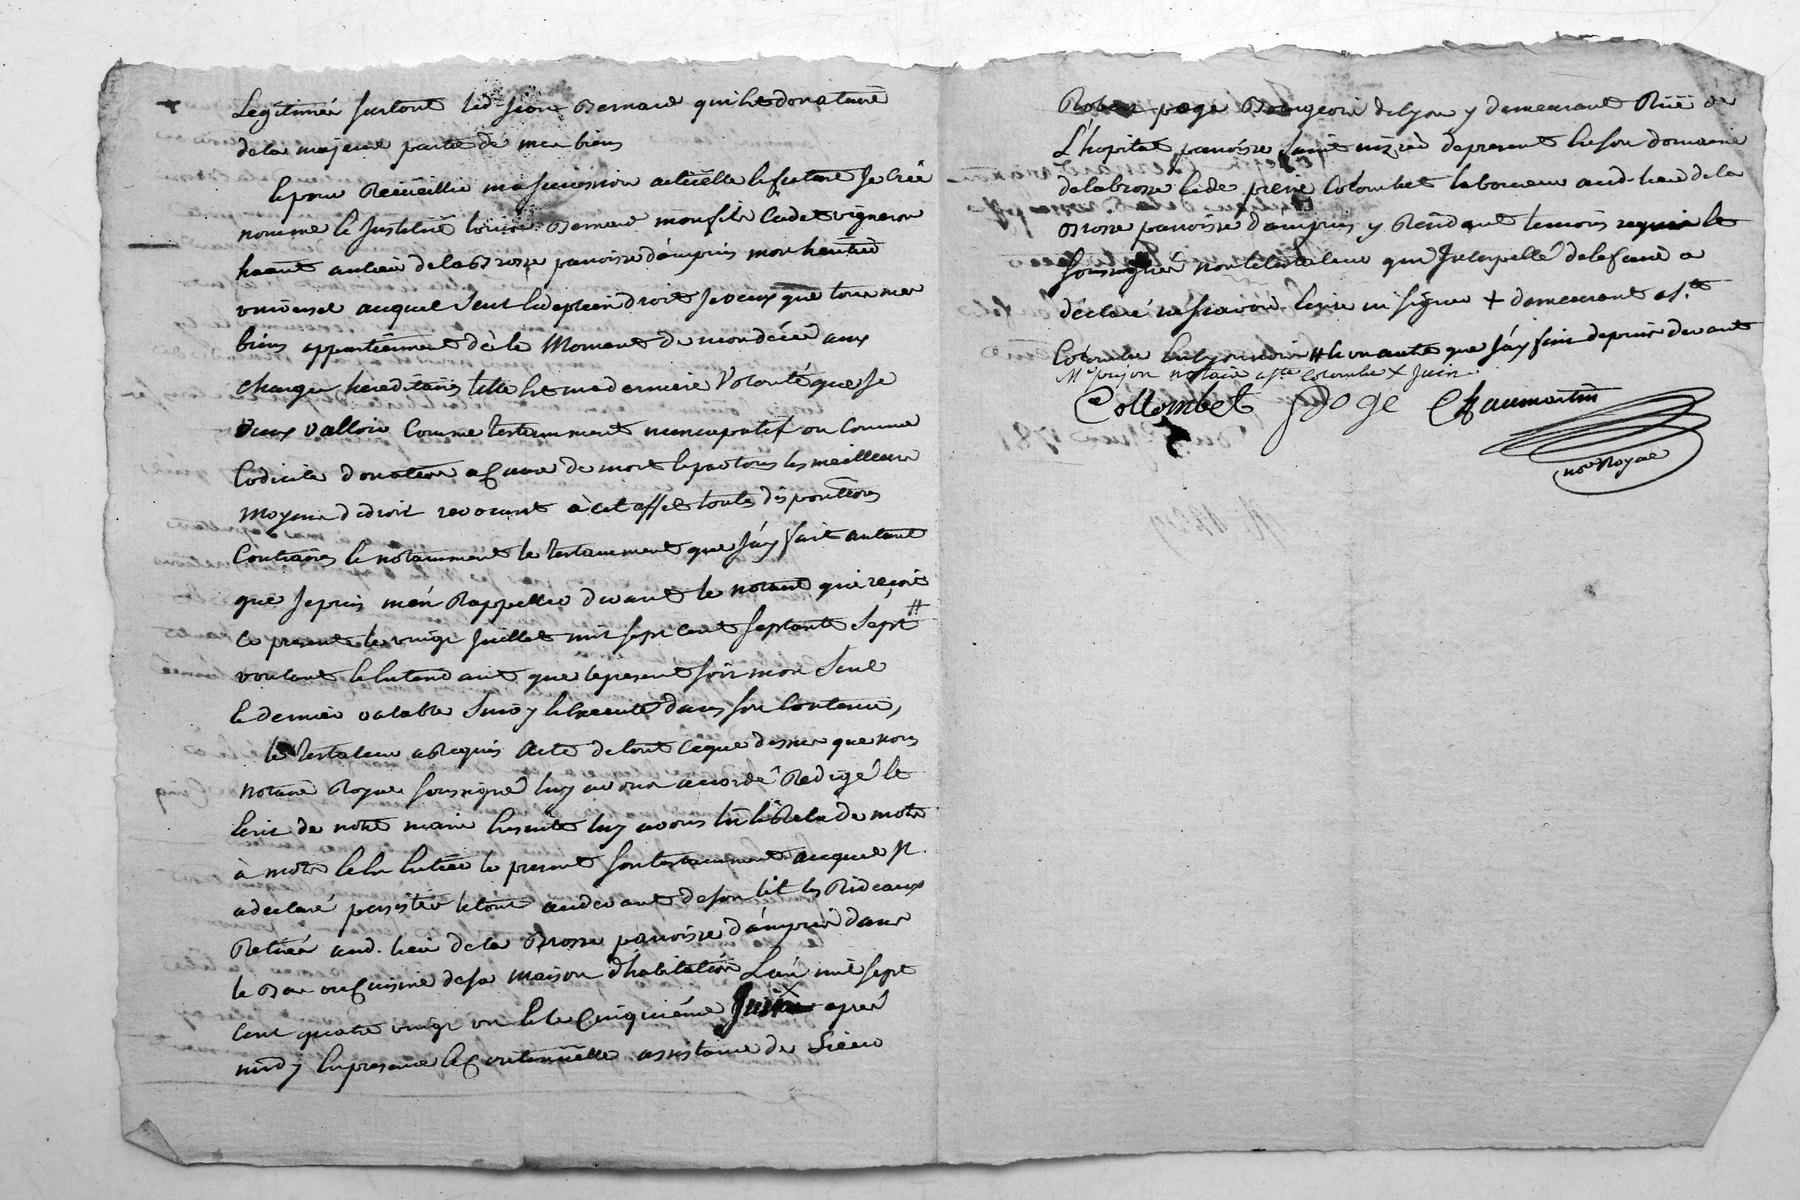 Legitimés surtout led. sieur Bernard qui est donataire
de la majeure partie de mes biens
Et pour Recueillir ma succession actuelle et future Je Crée
nomme et Institué Bernard mon fils Cadet vigneron
habitant au lieu de la Brosse paroisse d'ampuis mon heritier
universel auquel seul et de plein droit Je veux que tous mes
biens appartiennent dès le Moment de mon décéd aux
charges hereditaires telle est ma derniere Volonté que Je
veux valloir Comme testamment nuncupatif ou Comme
Codicile donation a Cause de mort et par tous les meilleurs
Moyens de droit revocant à cet effet toutes dispositions
Contraires et notamment le testamment que J'ay fait autant
que Je puis m'en Rappeller devant le notaire qui reçoit
ce present le vingt Juillet mil sept cent septante sept #
voulant et entendant que le present soit mon seul
et dernier valable suivy et executé dans son Contenu,
le testateur a Requis Acte de tout ce que dessus que nous
notaire Royal soussigné luy avons accordé Redigé et
Ecrit de notre main Ensuite luy avons lu et Relu de mots
à mots et en Entier le present son testamment auquel Il
a declaré persister le tout audevant de son lit les Rideaux
Retirés aud. lieu de la Brosse paroisse d'ampuis dans
le Bas ou Cuisine de sa maison d'habitation L'an mil sept
cent quatre vingt un et le Cinquiéme Juin x après
midy En presence et Continuelle assistance de Sieur
Robert poge Bourgeois de Lyon y demeurant Rüe de
L'hopital paroisse saint nizier de present En son domaine
de la brosse et de pierre Colombet laboureur aud. lieu de la
Brosse paroisse d'ampuis y Residant temoins requis et
soussignés non le testateur qui Interpellé de le faire a
déclaré ne sçavoir Ecrire ni signer + demeurant a ste
Colombe En Lyonnois # Et un autre que J'ay fait depuis devant
Me pujon notaire a ste Colombe x Juin.
Collombet poge Chaumartin
nore Royal